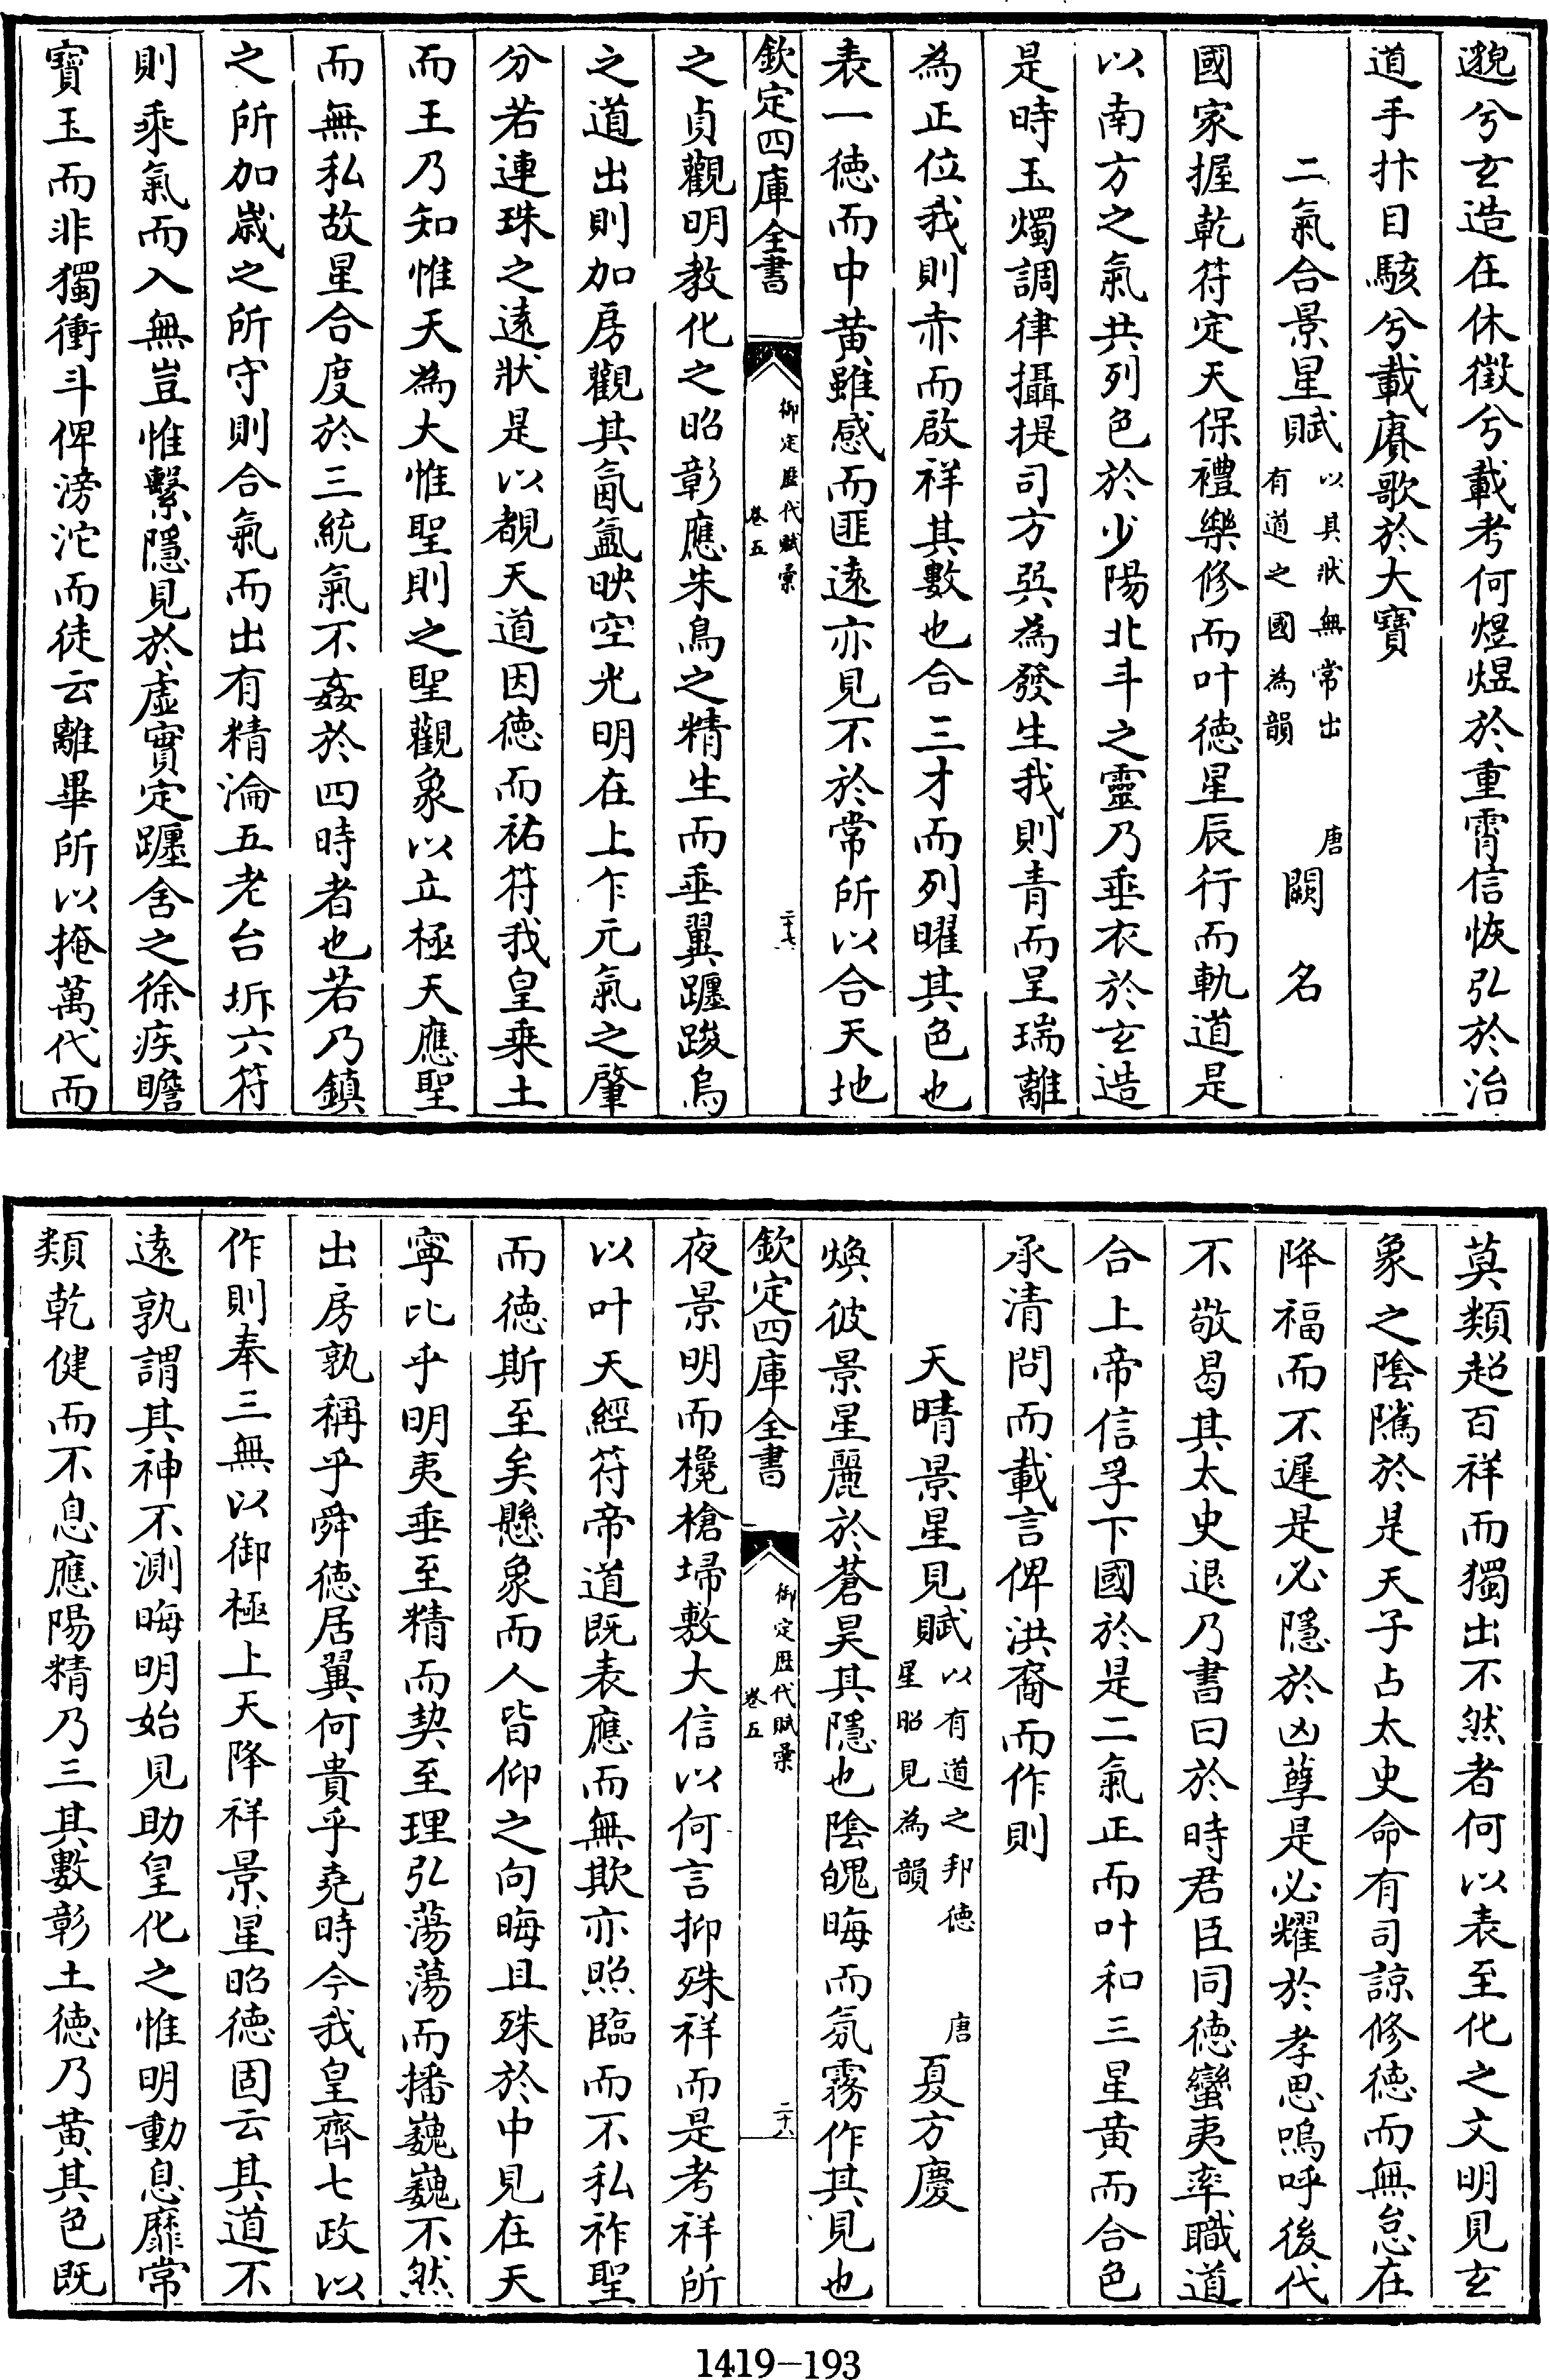 邈兮玄造在休徵兮載考何煜煜於重霄信恢弘於治
道手抃目駭兮載賡歌於大寳
二氣合景星賦以其狀無常出有道之國為韻 唐 闕名
國家握乾符定天保禮樂修而叶徳星辰行而軌道是
以南方之氣共列色於少陽北斗之靈乃垂衣於玄造
是時玉燭調律攝提司方㢲為發生我則青而呈瑞離
為正位我則赤而啟祥其數也合三才而列曜其色也
表一徳而中黄雖感而匪逺亦見不於常所以合天地
欽定四庫全書 御定歴代賦彚 卷五 二十七
之貞觀明教化之昭彰應朱鳥之精生而垂翼躔踆烏
之道出則加房觀其氤氲映空光明在上乍元氣之肇
分若連珠之逺狀是以覩天道因徳而祐符我皇乗土
而王乃知惟天為大惟聖則之聖觀象以立極天應聖
而無私故星合度於三統氣不姦於四時者也若乃鎮
之所加嵗之所守則合氣而出有精淪五老台坼六符
則乗氣而入無豈惟繫隱見於虚實定躔舍之徐疾瞻
寳玉而非獨衝斗俾滂沱而徒云離畢所以掩萬代而
莫類超百祥而獨出不然者何以表至化之文明見玄
象之陰隲於是天子占太史命有司諒修徳而無怠在
降福而不遲是必隱於凶孽是必耀於孝思嗚呼後代
不敬曷其太史退乃書曰於時君臣同徳蠻夷率職道
合上帝信孚下國於是二氣正而叶和三星黄而合色
承清問而載言俾洪裔而作則
天晴景星見賦以有道之邦徳星昭見為韻 唐 夏方慶
煥彼景星麗於蒼昊其隱也陰魄晦而氛霧作其見也
欽定四庫全書 御定歴代賦彚 卷五 二十八
夜景明而欃槍埽敷大信以何言抑殊祥而是考祥所
以叶天經符帝道既表應而無欺亦照臨而不私祚聖
而徳斯至矣懸象而人皆仰之向晦且殊於中見在天
寧比乎明夷垂至精而契至理弘蕩蕩而播巍巍不然
出房孰稱乎舜徳居翼何貴乎堯時今我皇齊七政以
作則奉三無以御極上天降祥景星昭徳固云其道不
逺孰謂其神不測晦明始見助皇化之惟明動息靡常
類乾健而不息應陽精乃三其數彰土徳乃黄其色既
1419-193